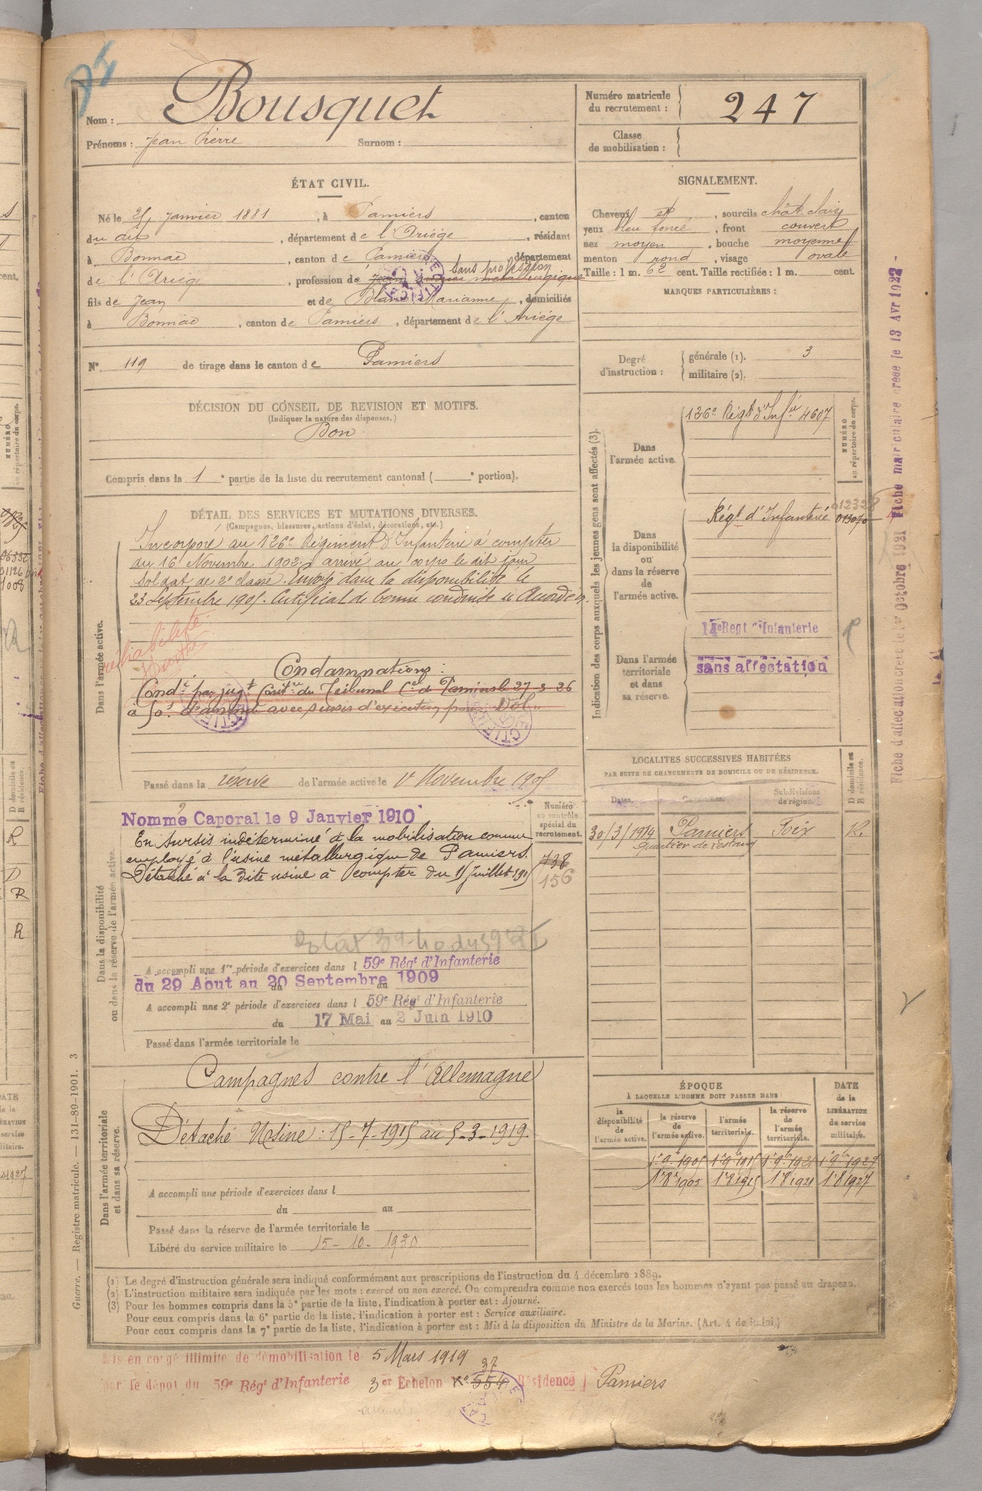 Nom : Bousquet
Prénoms : Jean Pierre Surnom :
Numéro matricule du recrutement : 247
Classe de mobilisation :
ÉTAT CIVIL.
Né le janvier 1881, à Pamiers, canton
du dit, département de l'Ariège, résidant
à Bonnac, canton de Pamiers, département
de l'Ariège, profession de sans profession
fils de Jean et de Marianne, domiciliés
à Bonnac, canton de Pamiers, département de l'Ariège
N° 119 de tirage dans le canton de Pamiers
SIGNALEMENT.
Cheveux et, sourcils chât clairs
yeux bleu foncé, front couvert
nez moyen, bouche moyenne
menton rond, visage ovale
Taille : 1 m. 62 cent. Taille rectifiée : 1 m. cent.
MARQUES PARTICULIÈRES :
Degré d'instruction : générale (1). 3
militaire (2).
DÉCISION DU CONSEIL DE REVISION ET MOTIFS.
(Indiquer la nature des dispenses.)
Bon
Compris dans la 1e partie de la liste du recrutement cantonal ( e portion).
DÉTAIL DES SERVICES ET MUTATIONS DIVERSES.
(Campagnes, blessures, actions d'éclat, décorations, etc.)
Dans l'armée active.
Incorporé au 126e Régiment d'Infanterie à compter
du 16 Novembre 1902 arrivé au corps le dit jour
soldat de 2e classe. Envoyé dans la disponibilité le
23 Septembre 1905. Certificat de bonne conduite
Condamnations :
Condé par jugt du Tribunal de Pamiers le 27-3-26
à d'amende avec sursis d'exécution pour Vol
Passé dans la réserve de l'armée active le 1er Novembre 1905
Indication des corps auxquels les jeunes gens sont affectés (3).
Dans l'armée active. 126e Régt d'Infie 4607
NUMÉRO au répertoire du corps.
Dans la disponibilité ou dans la réserve de l'armée active. Régt d'Infanterie 012328
Dans l'armée territoriale et dans sa réserve.
14e Regt d'Infanterie
sans affectation
LOCALITÉS SUCCESSIVES HABITÉES
PAR SUITE DE CHANGEMENTS DE DOMICILE OU DE RÉSIDENCE.
Dates. Communes. Subdivisions de région. D domicile ou R résidence.
30/3/1914 Pamiers Foix R.
Dans la disponibilité ou dans la réserve de l'armée active.
Numéro au contrôle spécial du recrutement.
738
156
Nommé Caporal le 9 Janvier 1910
En sursis indéterminé à la mobilisation comme
employé à l'usine métallurgique de Pamiers.
Détaché à la dite usine à compter du 15 juillet 1915
A accompli une 1re période d'exercices dans l 59e Régt d'Infanterie
du 29 Aout au 20 Septembre 1909
A accompli une 2e période d'exercices dans l 59e Régt d'Infanterie
du 17 Mai au 2 Juin 1910
Passé dans l'armée territoriale le
Dans l'armée territoriale et dans sa réserve.
Campagnes contre l'Allemagne
Détaché Usine : 15-7-1915 au 5-3-1919.
A accompli une période d'exercices dans l
du au
Passé dans la réserve de l'armée territoriale le
Libéré du service militaire le 15-10-1930
ÉPOQUE
À LAQUELLE L'HOMME DOIT PASSER DANS
la disponibilité de l'armée active. la réserve de l'armée active. l'armée territoriale. la réserve de l'armée territoriale.
DATE de la LIBÉRATION du service militaire.
1er 9bre 1905 1er 9bre 1915 1er 9bre 1921 1er 9bre 1927
1er 8bre 1905 1er 8 1915 1er 8 1921 1er 8 1927
(1) Le degré d'instruction générale sera indiqué conformément aux prescriptions de l'instruction du 4 décembre 1889.
(2) L'instruction militaire sera indiquée par les mots : exercé ou non exercé. On comprendra comme non exercés tous les hommes n'ayant pas passé au drapeau.
(3) Pour les hommes compris dans la 5e partie de la liste, l'indication à porter est : Ajourné.
Pour ceux compris dans la 6e partie de la liste, l'indication à porter est : Service auxiliaire.
Pour ceux compris dans la 7e partie de la liste, l'indication à porter est : Mis à la disposition du Ministre de la Marine. (Art. 4 de la loi.)
Mis en congé illimité de démobilisation le 5 Mars 1919
par le dépôt du 59e Régt d'Infanterie 3er Echelon N° 554 37 Résidence Pamiers
Guerre. — Registre matricule. — 131-89-1901. 3
Fiche d'affectation créée le Octobre 1921 Fiche matriculaire créée le 13 Avr 1922